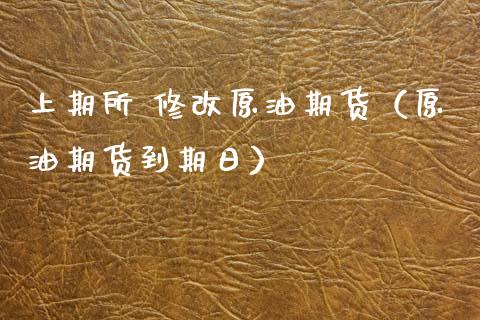 上期所 修改原油期货（原
油期货到期日）